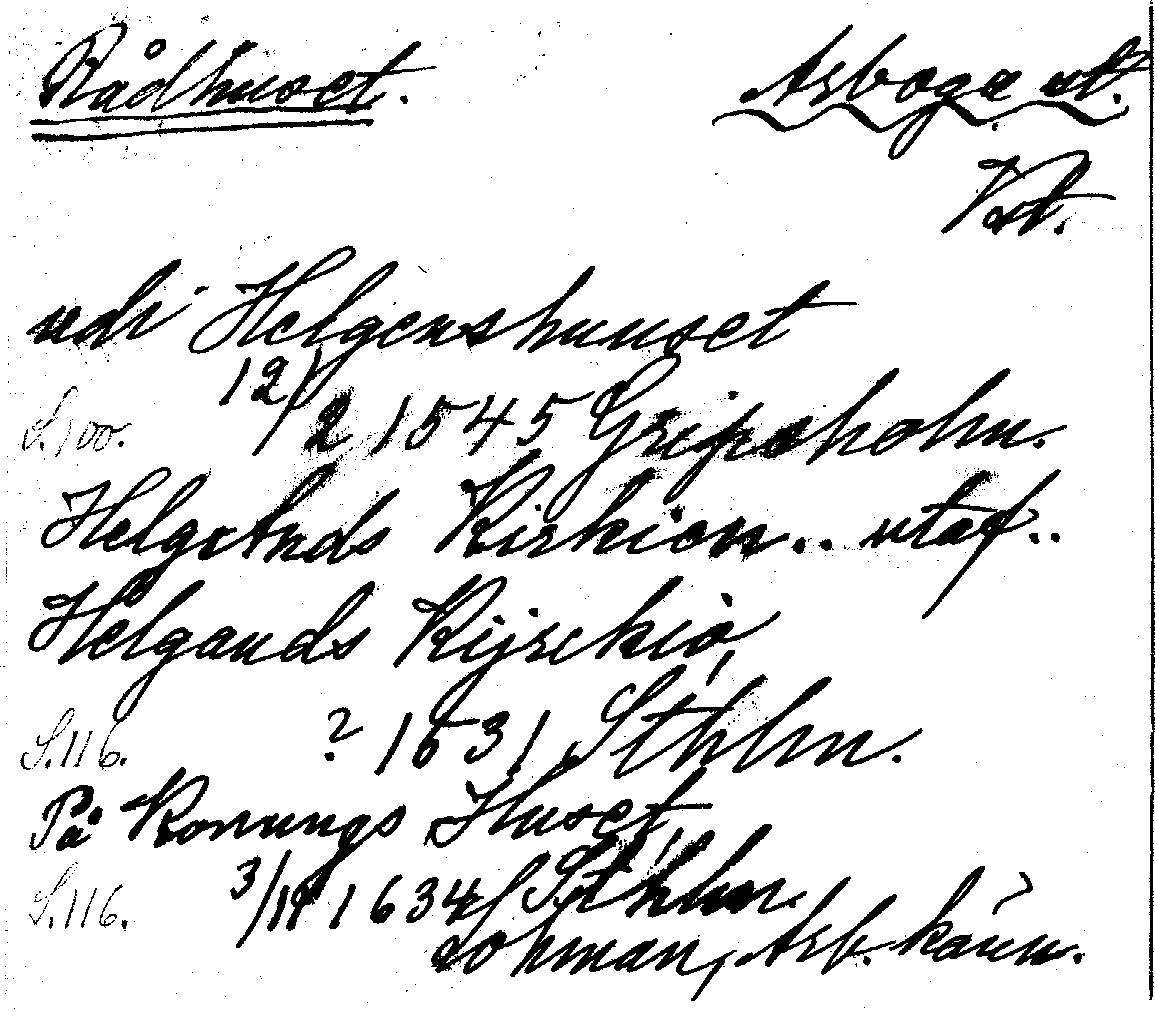 Rådhuset. Arboga st.
Vstl.
udi Helgenshuuset
S. 100. 12/2 1545 Gripsholm.
Helgeands Kirkien.. utaf..
Helgands Kijrckio,
S. 116. ? 1631, Sthlm.
På Konungs Huset,
S. 116. 3/11 1634, Sthlm.
Lohman, Arb. känn.